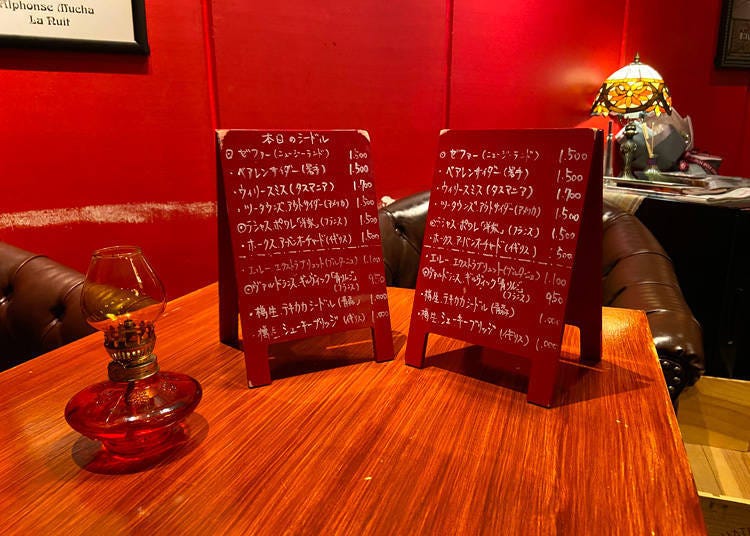 Alphonse Mucha
La Nuit
本日のシードル
◎ ゼファー (ニュージーランド) 1.500
・ベアレンサイダー (岩手) 1.500
・ウィリースミス (タスマニア) 1.700
・ツータウンズ アウトサイダー (アメリカ) 1.500
◎ラシャス ポワレ「洋梨」(フランス) 1.500
・ホークス アーバンオーチャード (イギリス) 1.500
・エルレー エクストラブリュット (ブルターニュ) 1.100
◎ヴァルドランス ギャヴィック「青りんご」 950
(フランス)
・樽生 テキカカシードル (青森) 1.000
・樽生 シューキーブリッジ (イギリス) 1.000
◎ ゼファー (ニュージーランド) 1.500
・ベアレンサイダー (岩手) 1.500
・ウィリースミス (タスマニア) 1.700
・ツータウンズ アウトサイダー (アメリカ) 1.500
◎ラシャス ポワレ「洋梨」(フランス) 1.500
・ホークス アーバンオーチャード (イギリス) 1.500
・エルレー エクストラブリュット (ブルターニュ) 1.100
◎ヴァルドランス ギャヴィック「青りんご」 950
(フランス)
・樽生 テキカカシードル (青森) 1.000
・樽生 シューキーブリッジ (イギリス) 1.000